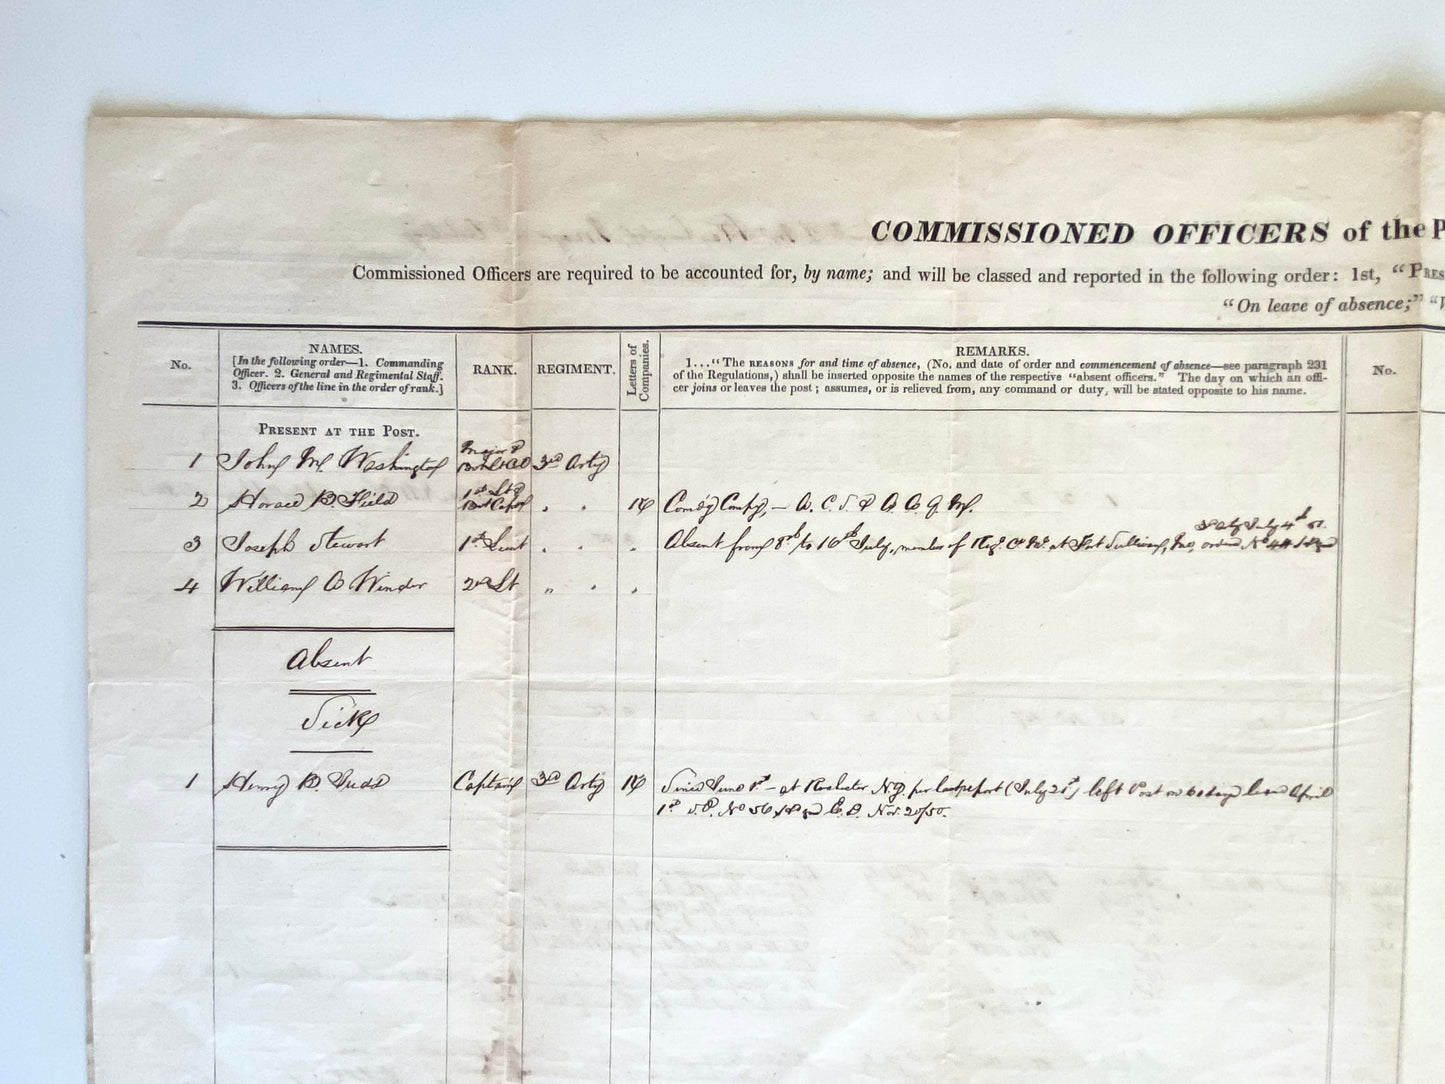 COMMISSIONED OFFICERS of the P
Commissioned Officers are required to be accounted for, by name; and will be classed and reported in the following order: 1st, "PRES
"On leave of absence;" "W
No.
NAMES.
[In the following order—1. Commanding
Officer. 2. General and Regimental Staff.
3. Officers of the line in the order of rank.]
RANK.
REGIMENT.
Letters of
Companies.
REMARKS.
1..."The REASONS for and time of absence, (No. and date of order and commencement of absence—see paragraph 231
of the Regulations,) shall be inserted opposite the names of the respective "absent officers." The day on which an offi-
cer joins or leaves the post; assumes, or is relieved from, any command or duty, will be stated opposite to his name.
No.
PRESENT AT THE POST.
Major &
1 John M. Washington Bvt Lt Col 3rd Arty
1st Lt &
2 Horace B. Field Bvt Capt " " Comdg Compy, — A. C. S. & A. A. Q. M.
3d Arty July 4th 51.
3 Joseph Stewart 1st Lieut " " " Absent from 8th to 16th July, member of Reg. C. M. at Fort Sullivan, Me, orders No 44
4 William A Winder 2nd Lt " " "
Absent
Sick
1 Henry B. Judd Captain 3rd Arty Since June 1st — at Rochester N.Y. per last report (July 21st) left Post on 60 days leave April
1st S.O. No 56 E. D. Nov. 20/50.